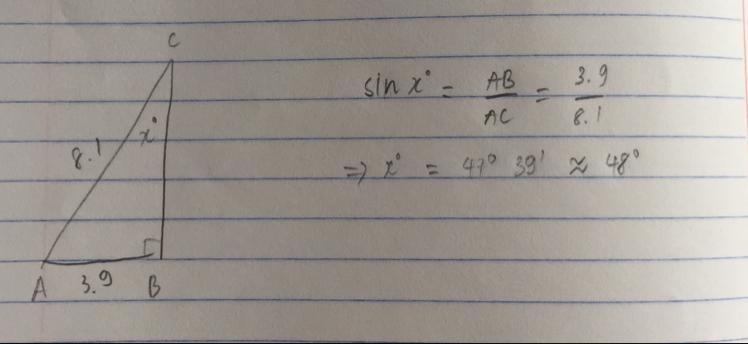 C
x°
8.1
A
3.9
B
sin x° = AB/AC = 3.9/8.1
⇒ x° = 47° 39' ≈ 48°